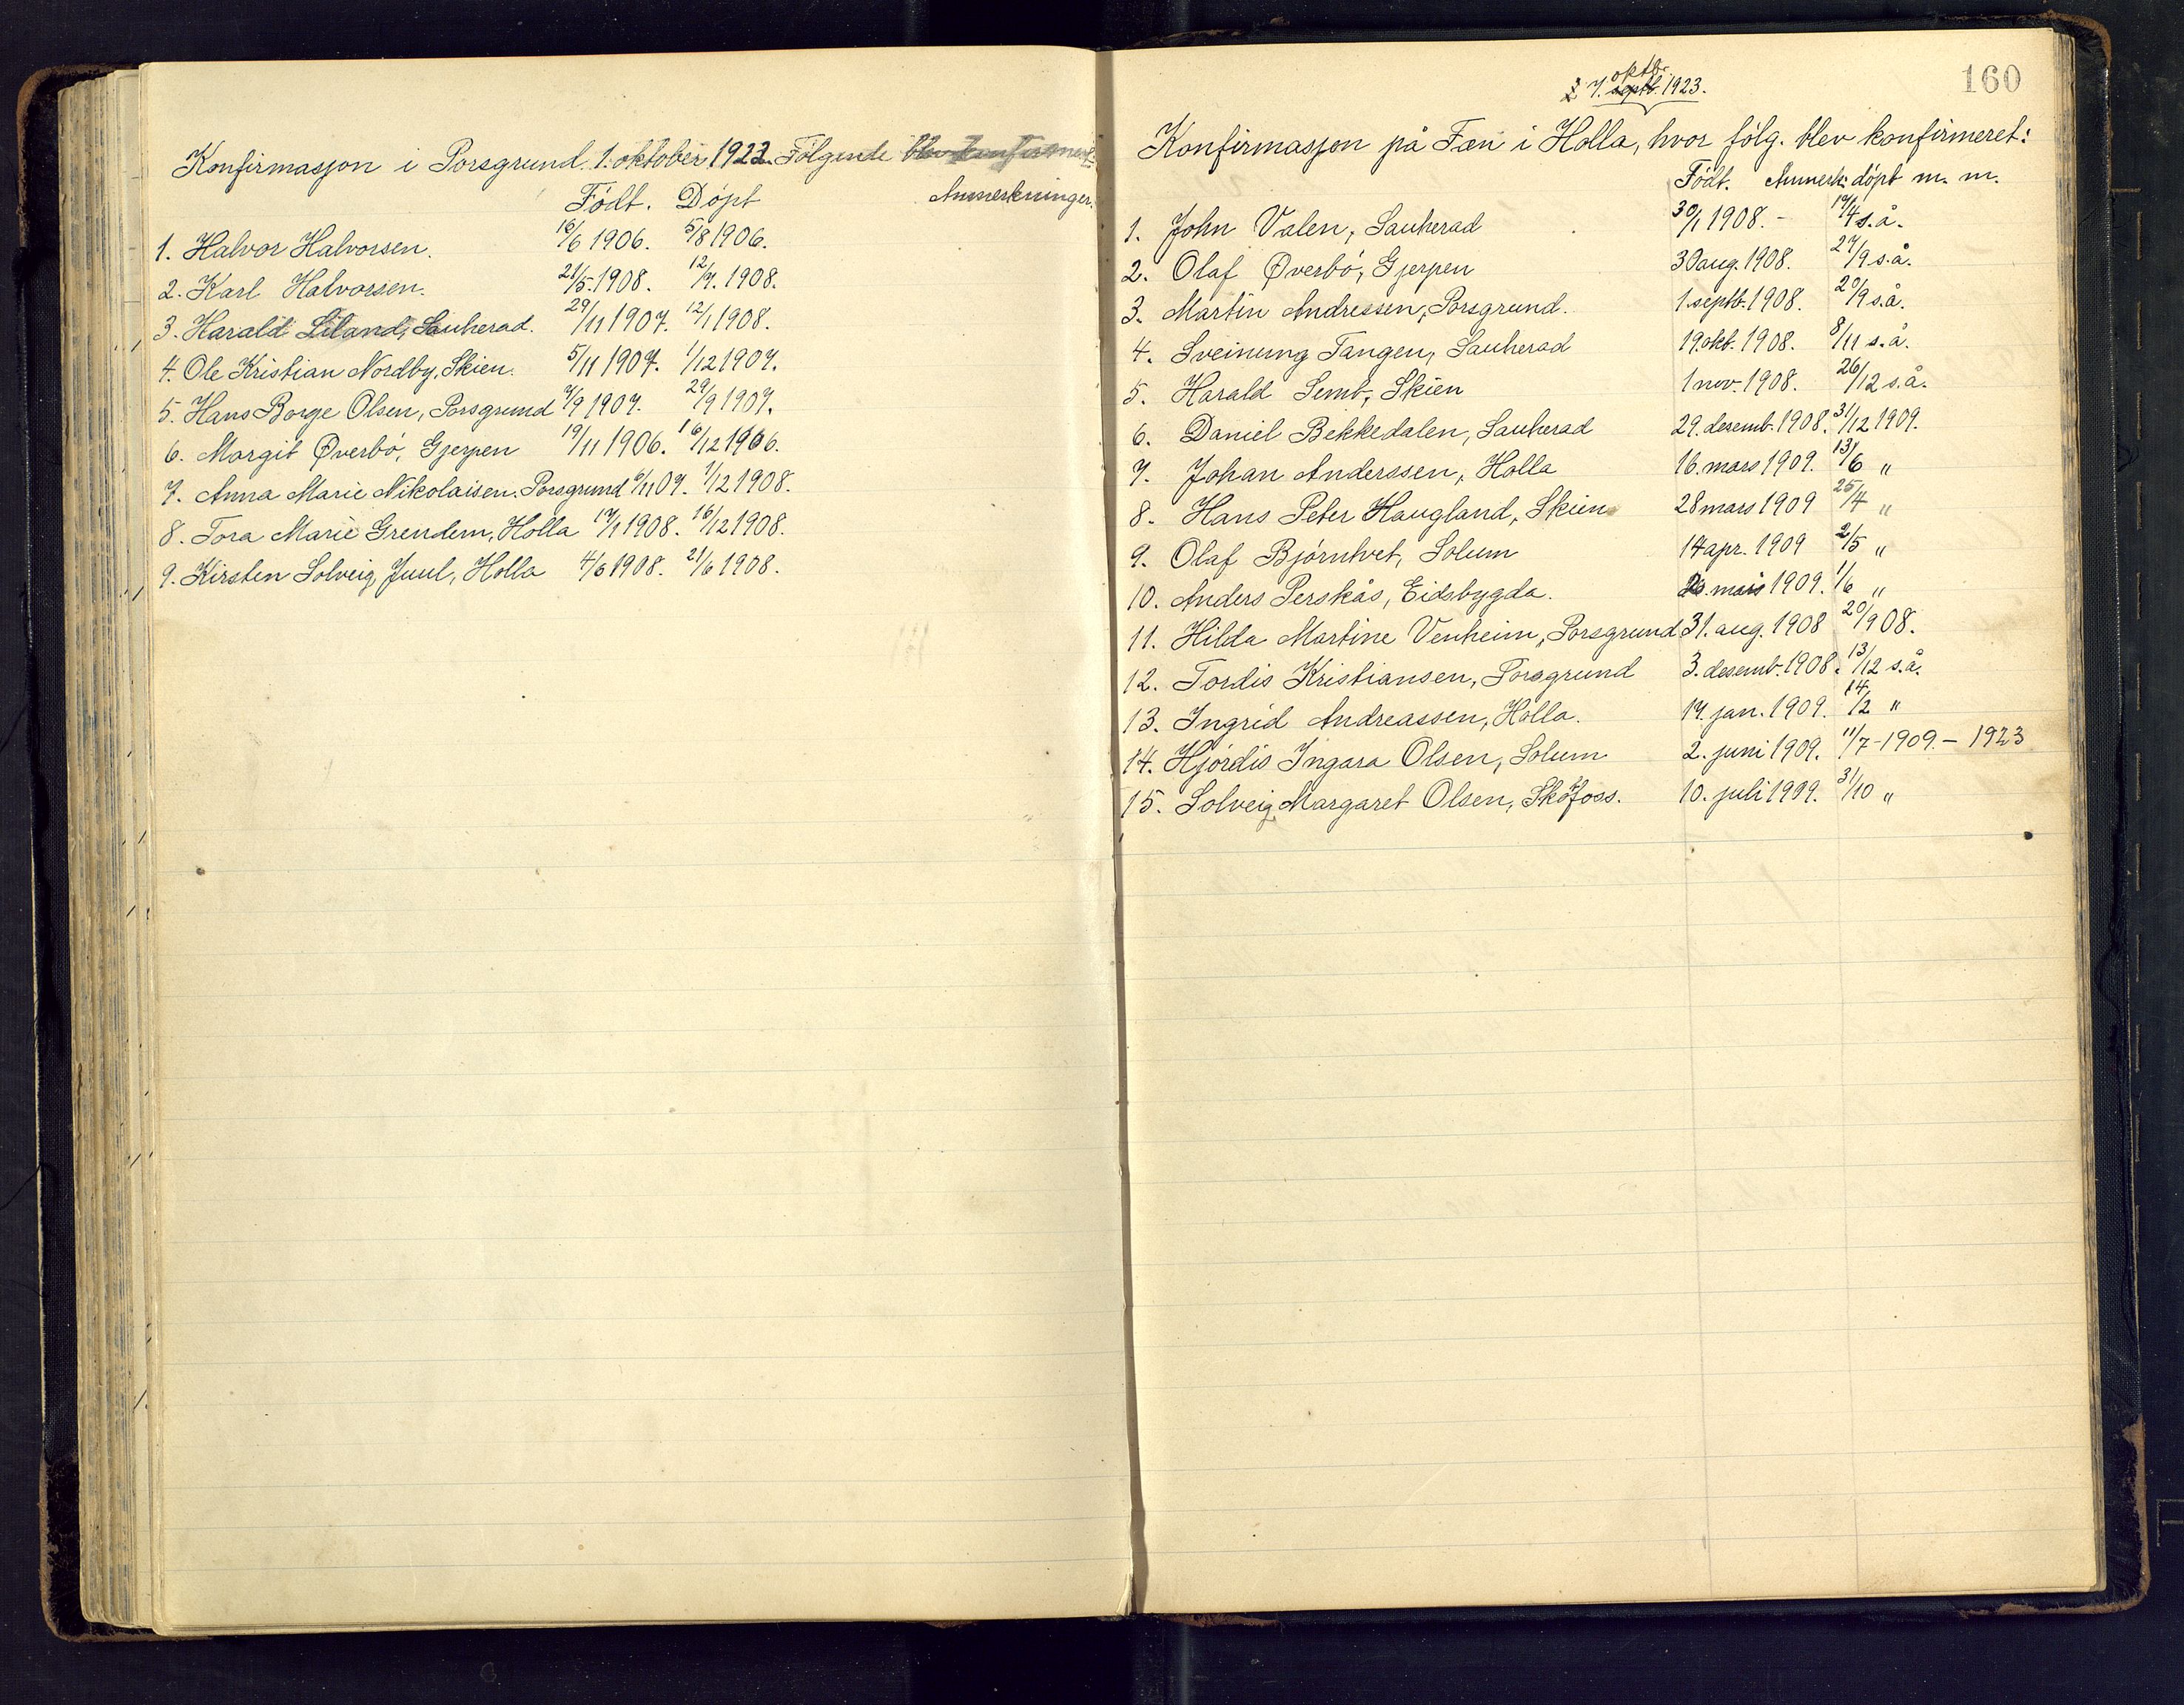 Konfirmasjon i Porsgrund. 1. oktober 1922. Følgende blev konfirmert:
Født. Døpt Anmerkninger.
1. Halvor Halvorsen. 16/6 1906. 5/8 1906.
2. Karl Halvorsen. 21/5. 1908. 12/7. 1908.
3. Harald Liland, Sauherad. 29/11 1907. 12/1 1908.
4. Ole Kristian Nordby, Skien. 5/11 1907. 1/12 1907.
5. Hans Borge Olsen, Porsgrund 7/9 1907. 29/9 1907.
6. Margit Øverbö, Gjerpen 19/11 1906. 16/12 1906.
7. Anna Marie Nikolaisen. Porsgrund 6/11 07. 1/12 1908.
8. Tora Marie Grendem, Holla 17/1 1908. 16/12 1908.
9. Kirsten Solveig Juul, Holla 4/6 1908. 21/6 1908.
160
oktb.
7. septb. 1923.
Konfirmasjon på Fæn i Holla, hvor følg. blev konfirmeret:
Født. Anmerk: døpt m. m.
1. John Valen, Sauherad 30/1 1908. - 19/4 s.å.
2. Olaf Øverbö, Gjerpen 30 aug. 1908. 27/9 s.å.
3. Martin Andressen, Porsgrund. 1. septb. 1908. 20/9 s.å.
4. Sveinung Tangen, Sauherad 19. okt. 1908. 8/11 s.å.
5. Harald Semb, Skien 1 nov. 1908. 26/12 s.å.
6. Daniel Bekkedalen, Sauherad 29. desemb. 1908. 31/12 1909.
7. Johan Anderssen, Holla 16. mars 1909. 13/6 "
8. Hans Peter Haugland, Skien 28 mars 1909 25/4 "
9. Olaf Bjørntvet, Solum 14 apr. 1909 2/5 "
10. Anders Perskås, Eidsbygda. mais 1909. 1/6 "
11. Hilda Martine Venheim, Porsgrund 31. aug. 1908 20/9 08.
12. Tordis Kristiansen, Porsgrund 3. desemb. 1908. 13/12 s.å.
13. Ingrid Andreassen, Holla. 17. jan. 1909. 14/2 "
14. Hjørdis Ingara Olsen, Solum 2. juni 1909. 11/7 - 1909. - 1923
15. Solveig Margaret Olsen, Skotfoss. 10. juli 1909. 31/10 "